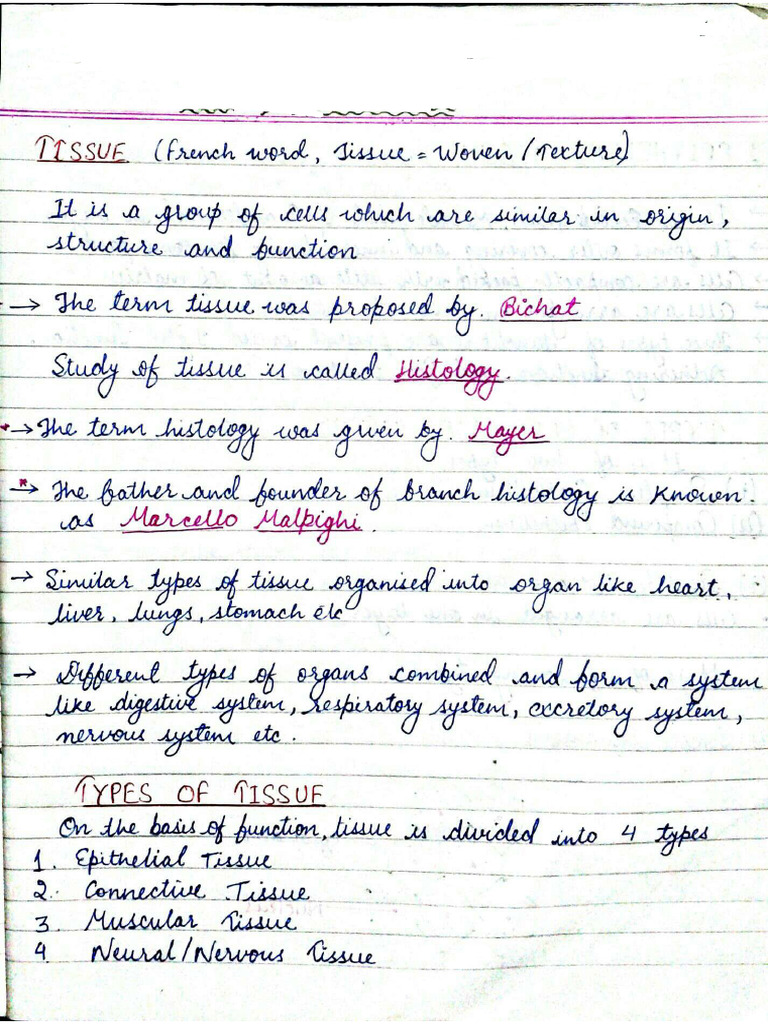 TISSUE (French word, Tissue = Woven / Texture)
It is a group of cells which are similar in origin,
structure and function
→ The term tissue was proposed by. Bichat
Study of tissue is called Histology.
*→ The term histology was given by. Mayer
*→ The father and founder of branch histology is known.
as Marcello Malpighi.
→ Similar types of tissue organised into organ like heart,
liver, lungs, stomach etc
→ Different types of organs combined and form a system
like digestive system, respiratory system, excretory system,
nervous system etc.
TYPES OF TISSUE
On the basis of function, tissue is divided into 4 types
1. Epithelial Tissue
2. Connective Tissue
3. Muscular Tissue
4 Neural/Nervous Tissue